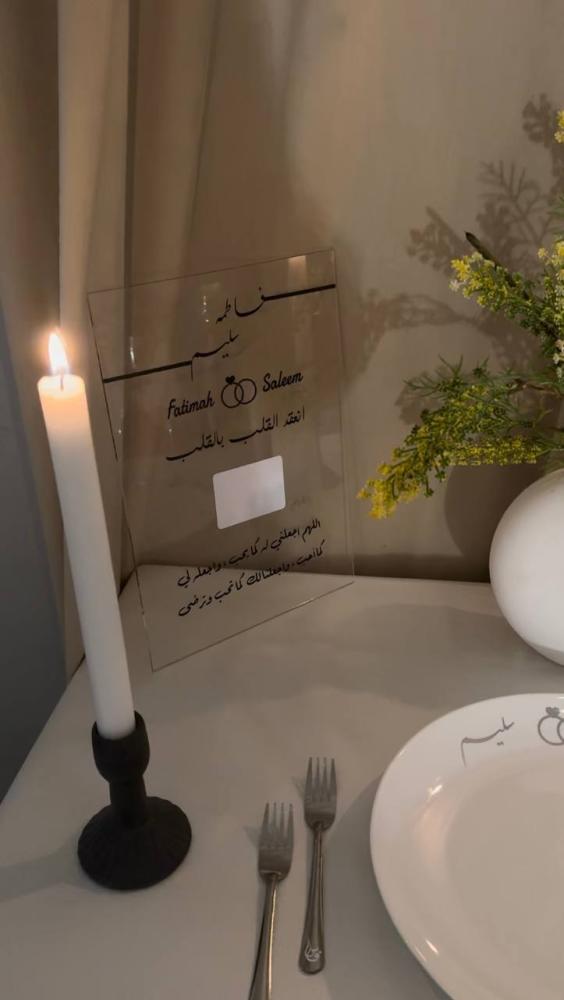 فاطمه
سليم
Fatimah Saleem
انعقد القلب بالقلب
اللهم اجعلني له كما يحب، واجعله لي
كما احب، واجعلنا لك كما تحب وترضى
سليم